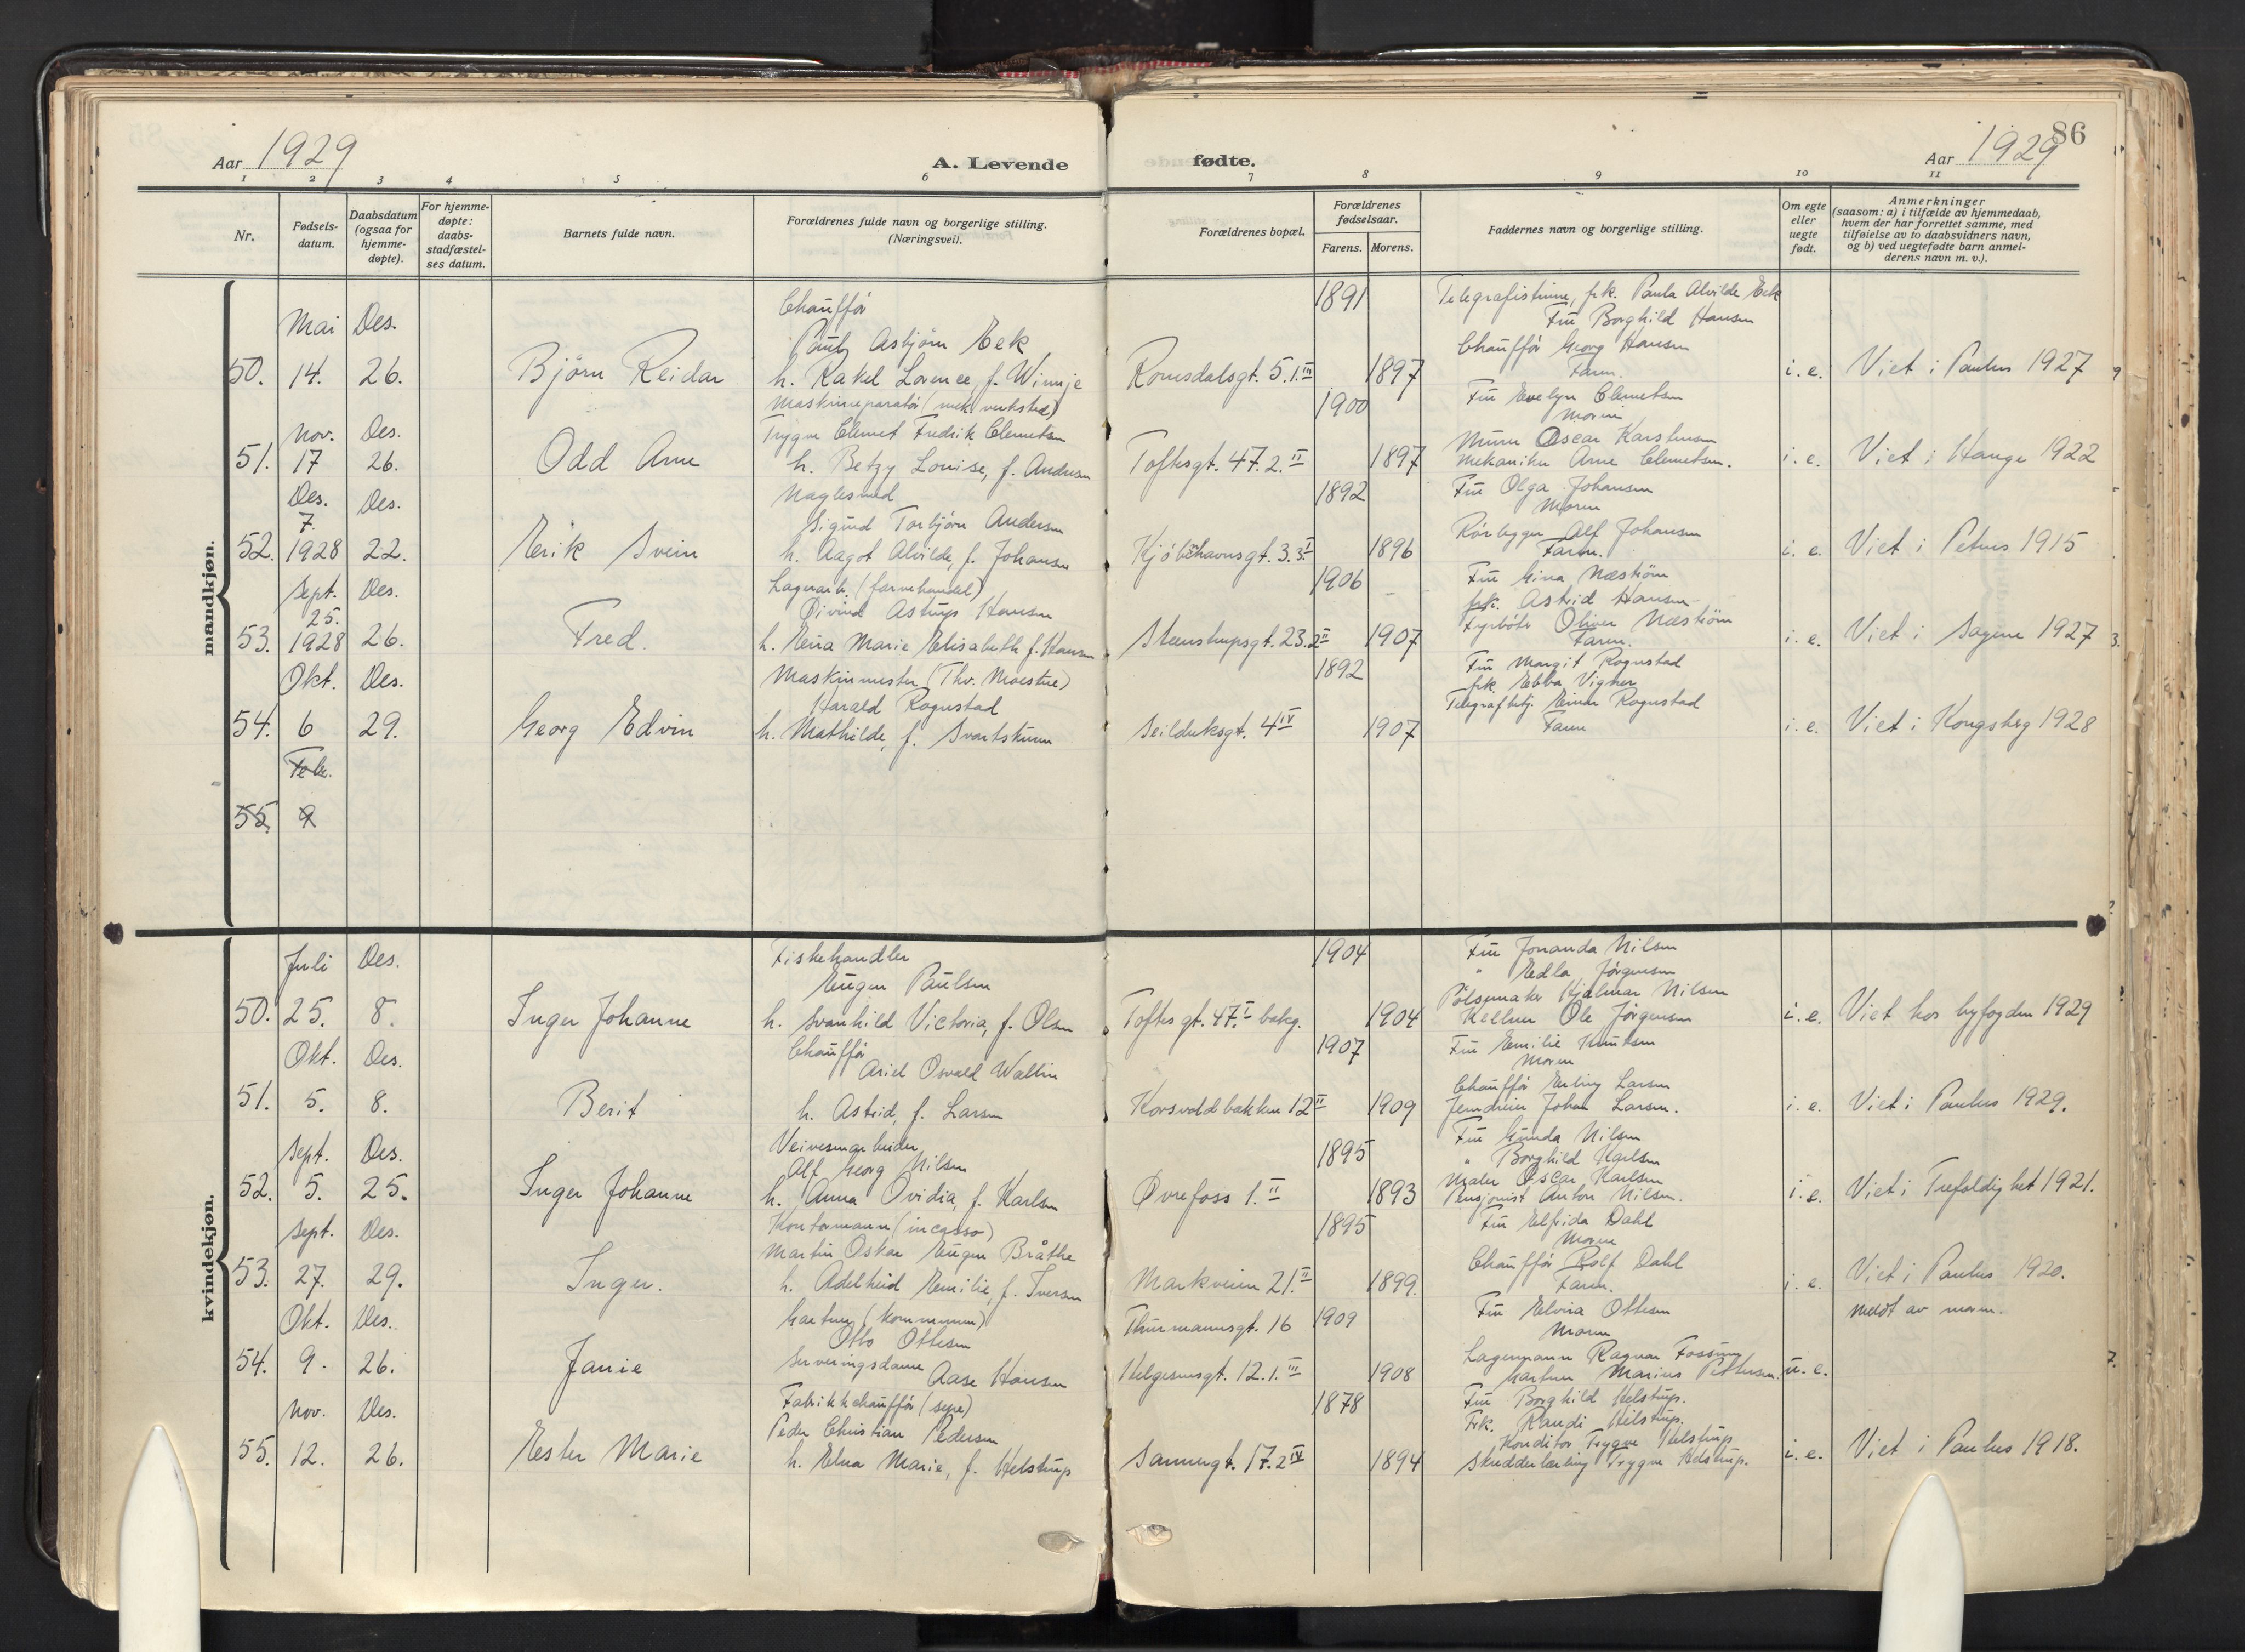 Aar 1929
A. Levende
1 2 3 4 5 6
Nr.
Fødsels-
datum.
Daabsdatum
(ogsaa for
hjemme-
døpte).
For hjemme-
døpte:
daabs-
stadfæstel-
ses datum.
Barnets fulde navn.
Forældrenes fulde navn og borgerlige stilling.
(Næringsvei).
fødte.
86
Aar 1929
7 8 9 10 11
Forældrenes bopæl.
Forældrenes
fødselsaar.
Farens. Morens.
Faddernes navn og borgerlige stilling.
Om egte
eller
uegte
født.
Anmerkninger
(saasom: a) i tilfælde av hjemmedaab,
hvem der har forrettet samme, med
tilføielse av to daabsvidners navn,
og b) ved uegtefødte barn anmel-
derens navn m. v.).
mandkjøn.
50.
Mai
14.
Des.
26.
Bjørn Reidar
Chauffør
Asbjørn Eek
h. Rakel Lorence, f. Winnje
Romsdalsgt. 5.1.III
1891
1897
Telegrafistinne, frk. Paula Alvilde Eek
Fru Borghild Hansen
Chauffør Georg Hansen
Faren.
i. e.
Viet i Paulus 1927
51.
Nov.
17
Des.
26.
Odd Arne
Maskinreparatør (mek verksted)
Trygve Clemet Fredrik Clemetsen
h. Betzy Louise, f. Andersen
Toftesgt. 47.2.II
1900
1897
Fru Evelyn Clemetsen
Moren
Murer Oscar Karstensen
Mekaniker Arne Clemetsen.
i. e.
Viet i Hauge 1922
52.
Des.
7.
1928
Des.
22.
Erik Svein
Naglesmed
Sigurd Torbjørn Andersen
h. Aagot Alvilde, f. Johansen
Kjøbenhavnsgt. 3.3.I
1892
1896
Fru Olga Johansen
Moren
Rørlegger Alf Johansen
Faren.
i. e.
Viet i Petrus 1915
53.
Sept.
25.
1928
Des.
26.
Fred.
Lagerarb. (farvehandel)
Øivind Astrup Hansen
h. Erna Marie Elisabeth f. Hansen
Steenstrupsgt. 23.2II
1906
1907
Fru Gina Næstrøm
frk. Astrid Hansen
Fyrbøter Oliver Næstrøm
Faren.
i. e.
Viet i Sagene 1927
54.
Okt.
6
Des.
29.
Georg Edvin
Maskinmester (Thv. Moestue)
Harald Rognstad
h. Mathilde, f.
Seilduksgt. 4IV
1892
1907
Fru Margit Rognstad
frk. Ebba Vigner
Telegrafbetj. Einar Rognstad
Faren
i. e.
Viet i Kongsberg 1928
Febr.
55. 9
kvindekjøn.
50.
Juli
25.
Des.
8.
Inger Johanne
Fiskehandler
Eugen Paulsen
h. Svanhild Victoria, f. Olsen
Toftes gt. 47.I bakg.
1904
1904
Fru Jonanda Nilsen
" Edla Jørgensen
Pølsemaker Hjalmar Nilsen
Kellner Ole Jørgensen
i. e.
Viet hos byfogden 1929
51.
Okt.
5.
Des.
8.
Berit
Chauffør
Ariel Osvald Wallin
h. Astrid, f. Larsen
Korsvoldbakken 12II
1907
1909
Fru Emilie Knutsen
Moren
Chauffør Erling Larsen
Jerndreier Johan Larsen.
i. e.
Viet i Paulus 1929.
52.
Sept.
5.
Des.
25.
Inger Johanne
Veivesenarbeider
Alf Georg Nilsen
h. Anna Ovidia, f. Karlsen
Øvrefoss 1.II
1895
1893
Fru Gunda Nilsen
" Borghild Karlsen
Maler Oscar Karlsen
Pensjonist Anton Nilsen.
i. e.
Viet i Trefoldighet 1921.
53.
Sept.
27.
Des.
29.
Inger.
Kontormann (incasso)
Martin Oskar Eugen Bråthe
h. Adelheid Emilie, f. Iversen
Markveien 21.II
1895
1899.
Fru Elfrida Dahl
Moren
Chauffør Rolf Dahl
Faren.
i. e.
Viet i Paulus 1920.
54.
Okt.
9.
Des.
26.
Janie
Gartner (kommunen)
Otto Ottesen
Serveringsdame
Aase Hansen
Thurmannsgt. 16
Helgesensgt. 12.1.III
1909
1908
Fru Elvira Ottesen
Moren
Lagermann Ragnar Fossum
Gartner Marius Pettersen.
u. e.
meldt av moren.
55.
Nov.
12.
Des.
26.
Ester Marie
Fabrikkchauffør (sepe)
Peder Christian Pedersen
h. Elna Marie, f. Helstrup
Sannergt. 17.2IV
1878
1894
Fru Borghild Helstrup.
Frk. Randi Helstrup.
Konditor Trygve Helstrup
Skredderlærling Trygve Helstrup.
i. e.
Viet i Paulus 1918.